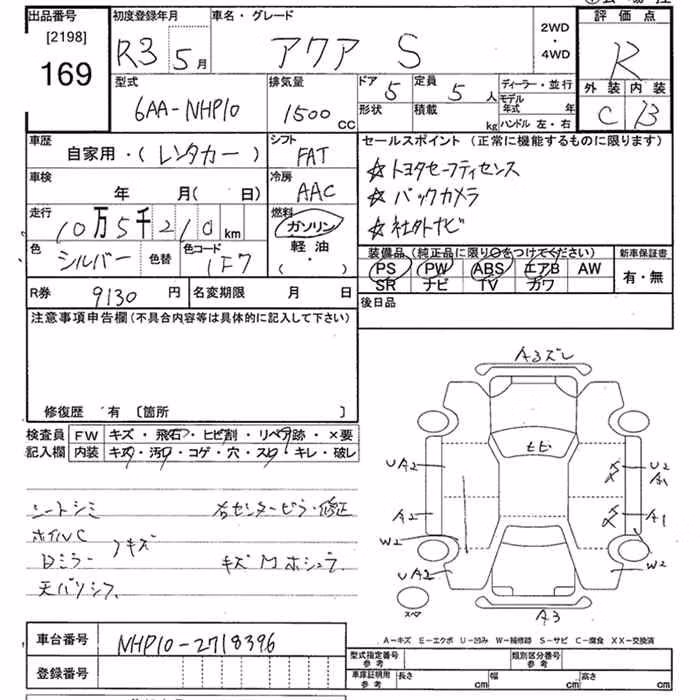 出品番号
[2198]
169
初度登録年月
R3 5月
車名・グレード
アクア S
2WD
・
4WD
評価点
R
型式
6AA-NHP10
排気量
1500 CC
ドア 5
定員 5人
形状
積載 kg
ディーラー・並行
モデル年式 年
ハンドル 左・右
外装 内装
C B
車歴
自家用・(レンタカー)
シフト
FAT
セールスポイント (正常に機能するものに限ります)
☆トヨタセーフティセンス
☆バックカメラ
☆社外ナビ
車検
年 月( 日)
冷房
AAC
走行
10万5千210km
燃料
ガソリン
軽油
( ・ )
色
シルバー
色替
色コード
1F7
装備品 (純正品に限り○をつけてください)
PS PW ABS エアB AW
SR ナビ TV カワ
新車保証書
有・無
R券 9130円
名変期限 月 日
後日品
注意事項申告欄 (不具合内容等は具体的に記入して下さい)
修復歴 有 〔箇所 〕
検査員記入欄
FW キズ・飛石・ヒビ割・リペア跡・×要
内装 キズ・汚レ・コゲ・穴・スレ・キレ・破レ
シートシミ
右センターピラー修正
ホイルC
Dミラー キズ
天バリシミ
A3ズレ
ヒビ
UA2
U2
A1
A2
A1
W2
UA2
W2
スペア
A3
A-キズ E-エクボ U-凹み W-補修跡 S-サビ C-腐食 XX-交換済
車台番号
NHP10-2718396
登録番号
型式指定番号 参考
類別区分番号 参考
車庫証明用 参考
長さ cm
幅 cm
高さ cm